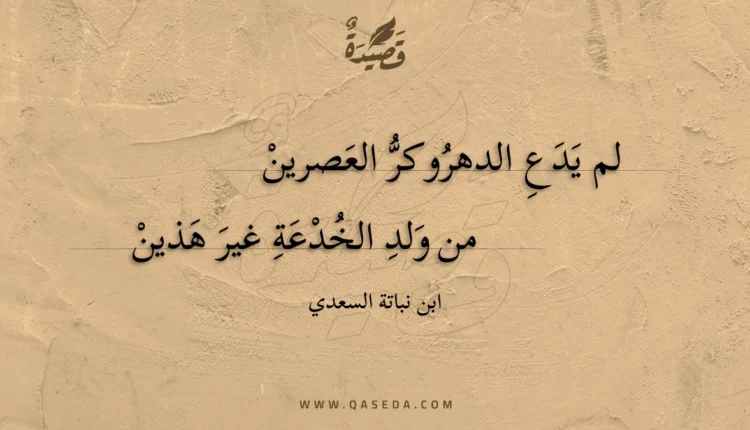 قَصِيْدَةٌ
لم يَدَعِ الدهرُ وكرُّ العَصرينْ
من وَلدِ الخُدْعَةِ غيرَ هَذينْ
ابن نباتة السعدي
WWW.QASEDA.COM